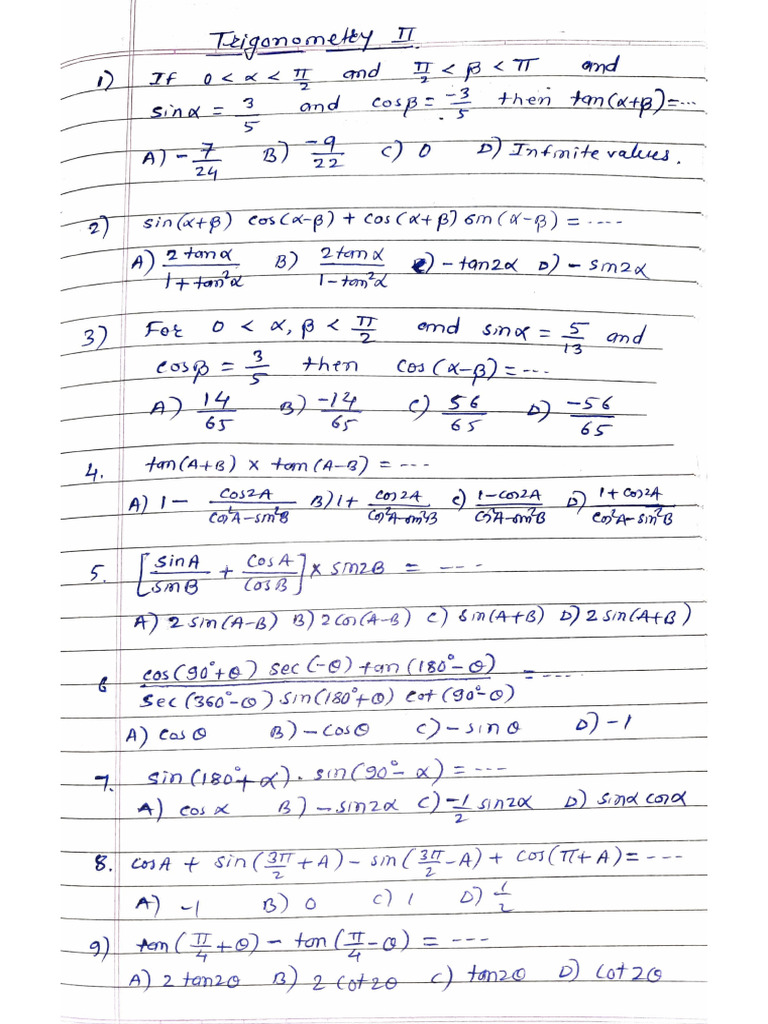 Trigonometry II
1) If 0 < α < π/2 and π/2 < β < π and
sinα = 3/5 and cosβ = -3/5 then tan(α+β)=---
A) -7/24 B) -9/22 C) 0 D) Infinite values.
2) sin(α+β) cos(α-β) + cos(α+β) sin(α-β) = ----
A) 2tanα/1+tan²α B) 2tanα/1-tan²α C) -tan2α D) -sin2α
3) For 0 < α, β < π/2 and sinα = 5/13 and
cosβ = 3/5 then cos(α-β) = ---
A) 14/65 B) -14/65 C) 56/65 D) -56/65
4. tan(A+B) × tan(A-B) = ---
A) 1- cos2A/cos²A-sin²B B) 1+ cos2A/cos²A-sin²B C) 1-cos2A/cos²A-sin²B D) 1+cos2A/cos²A-sin²B
5. [sinA/sinB + cosA/cosB] × sin2B = ---
A) 2sin(A-B) B) 2cos(A-B) C) sin(A+B) D) 2sin(A+B)
6 cos(90°+θ) sec(-θ) tan(180°-θ)/sec(360°-θ) sin(180°+θ) cot(90°-θ) = ---
A) cosθ B) -cosθ C) -sinθ D) -1
7. sin(180°+α). sin(90°-α) = ---
A) cosα B) -sin2α C) -1/2 sin2α D) sinα cosα
8. cosA + sin(3π/2 +A) - sin(3π/2 -A) + cos(π+A) = ---
A) -1 B) 0 C) 1 D) 1/2
9) tan(π/4 +θ) - tan(π/4 -θ) = ---
A) 2tan2θ B) 2cot2θ C) tan2θ D) cot2θ